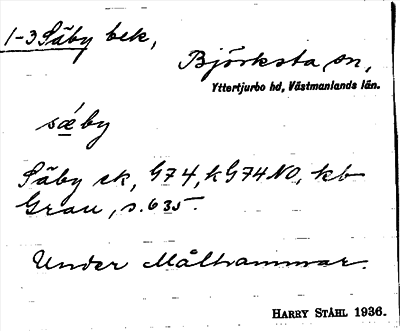 1-3 Säby bek,
Björksta sn,
Yttertjurbo hd, Västmanlands län.
sæby
Säby ek, G74, kG74NO, kb
Grau, s. 635.
Under Målhammar.
HARRY STÅHL 1936.